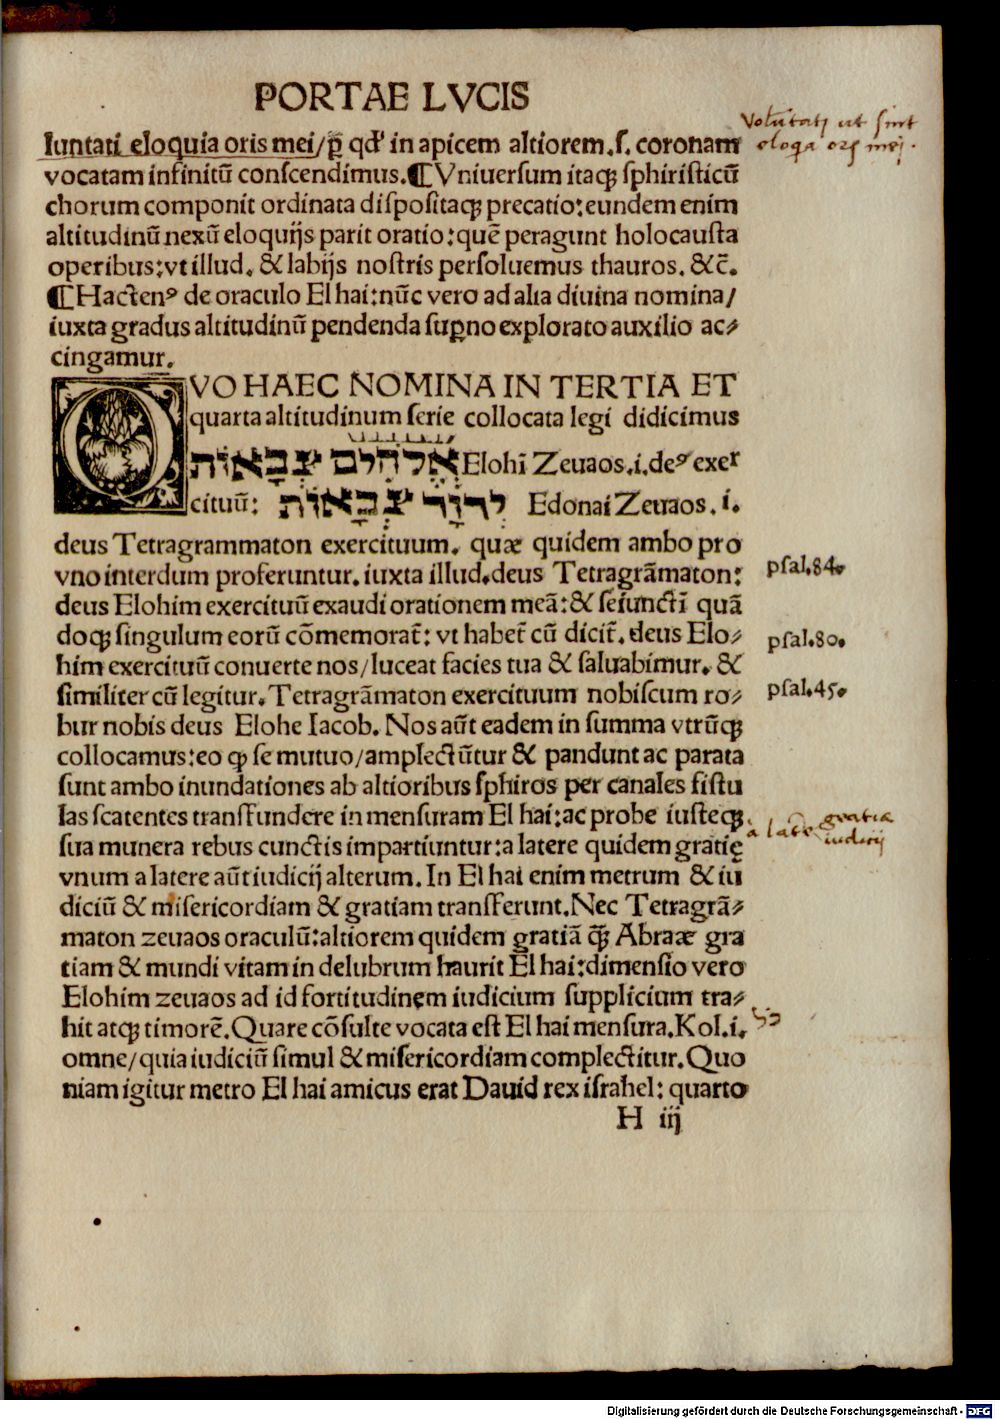 PORTAE LVCIS
luntati eloquia oris mei/ꝑ qd' in apicem altiorem.ſ. coronam
Volūtati ut ſint
eloqa orꝭ mei.
vocatam infinitū conſcendimus.¶Vniuerſum itaqꝫ ſphiriſticū
chorum componit ordinata diſpoſitaqꝫ precatio:eundem enim
altitudinū nexū eloquijs parit oratio:quē peragunt holocauſta
operibus:vt illud. & labijs noſtris perſoluemus thauros. &c̄.
¶Hactenꝰ de oraculo El hai:nūc vero ad alia diuina nomina/
iuxta gradus altitudinū pendenda ſuꝑno explorato auxilio ac⸗
cingamur.
DVO HAEC NOMINA IN TERTIA ET
quarta altitudinum ſerie collocata legi didicimus
אֱלֹהִים צְבָאוֹת Elohī Zeuaos.i.deꝰ exer
cituū: יְהוָֹה צְבָאוֹת Edonai Zeuaos. i.
deus Tetragrammaton exercituum. quæ quidem ambo pro
vno interdum proferuntur.iuxta illud.deus Tetragrāmaton:
psal.84.
deus Elohim exercituū exaudi orationem meā:& ſeiunctī quā
doqꝫ ſingulum eorū cōmemorat̄: vt habet̄ cū dicit̄. deus Elo⸗
psal.80.
him exercituū conuerte nos/luceat facies tua & ſaluabimur. &
ſimiliter cū legitur. Tetragrāmaton exercituum nobiſcum ro⸗
psal.45.
bur nobis deus Elohe Iacob. Nos aūt eadem in ſumma vtrūqꝫ
collocamus:eo ꝙ ſe mutuo/amplectūtur & pandunt ac parata
ſunt ambo inundationes ab altioribus ſphiros per canales fiſtu
las ſcatentes transfundere in menſuram El hai:ac probe iuſteqꝫ
ſua munera rebus cunctis impartiuntur:a latere quidem gratię
a late gratiæ
iudicij
vnum a latere aūt iudicij alterum. In El hai enim metrum & iu
diciū & miſericordiam & gratiam transferunt.Nec Tetragrā⸗
maton zeuaos oraculū:altiorem quidem gratiā q̄ꝫ Abraæ gra
tiam & mundi vitam in delubrum haurit El hai:dimenſio vero
Elohim zeuaos ad id fortitudinem iudicium ſupplicium tra⸗
hit atqꝫ timorē.Quare cōſulte vocata eſt El hai menſura.Kol.i.
כל
omne/quia iudiciū ſimul & miſericordiam complectitur.Quo
niam igitur metro El hai amicus erat Dauid rex iſrahel: quarto
H iij
Digitalisierung gefördert durch die Deutsche Forschungsgemeinschaft - DFG